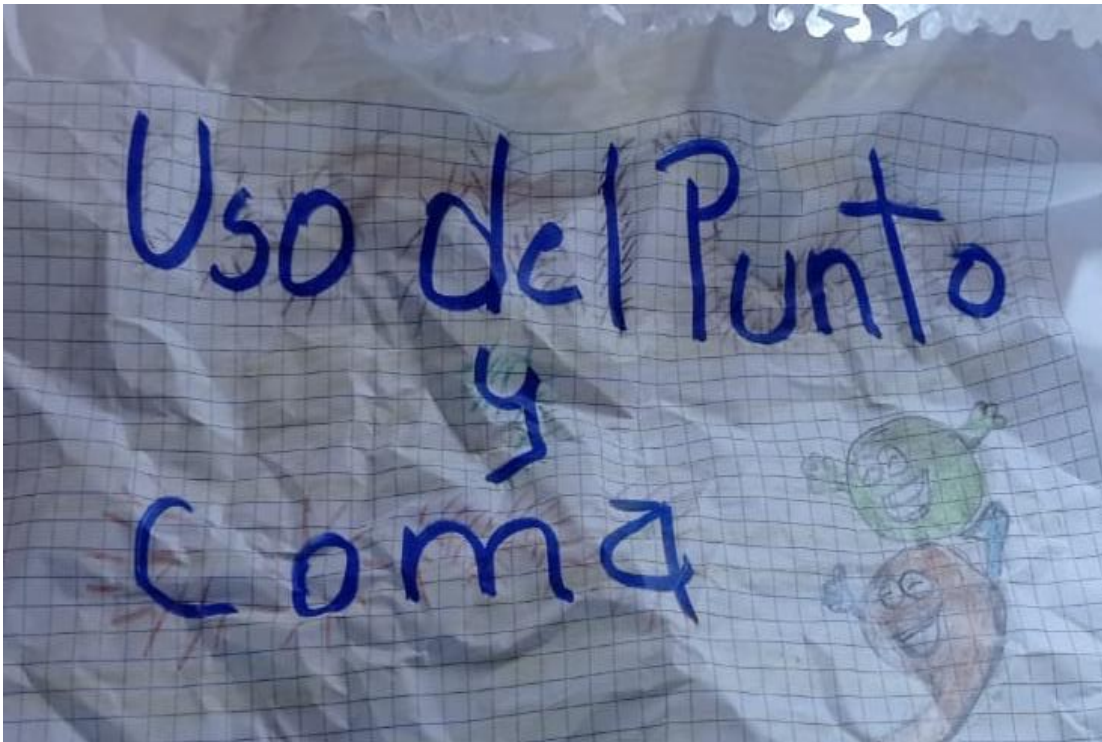 Uso del Punto
y
Coma